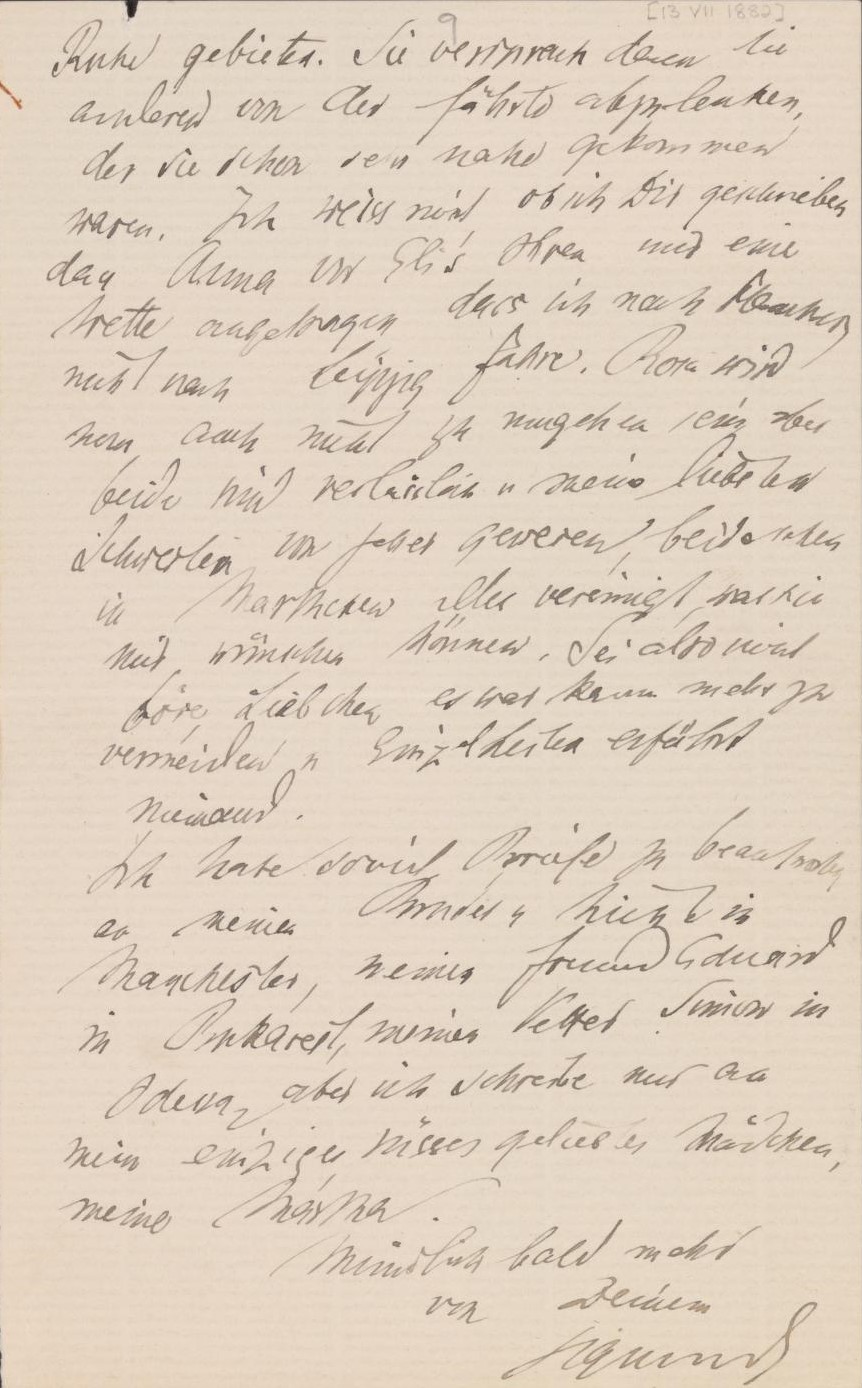 [13 VII 1882]
9
Ruhe gebieten. Sie versprach dann die
anderen von der Fährte abzulenken,
der sie schon sehr nahe gekommen
waren. Ich weiss nicht ob ich Dir geschrieben
daß Anna vor Eli's Ohren mir eine
Wette angetragen dass ich nach
nicht nach Leipzig fahre. Rosa wird
nun auch nicht zu umgehen sein aber
beide sind verlässlich u meine liebsten
Schwestern von jeher gewesen, beide sehen
in Marthchen alles vereinigt was sie
mir wünschen können. Sei also nicht
böse, Liebchen es war kaum mehr zu
vermeiden u Einzelheiten erfährt
niemand.
Ich habe soviel Briefe zu beantworten
an meinen Bruder u in
Manchester, meinen Freund Eduard
in Bukarest, meinen Vetter Simon in
Odessa, aber ich schreibe nur an
mein einziges süsses geliebtes Mädchen,
meine Martha.
Mündlich bald mehr
von Deinem
Sigmund